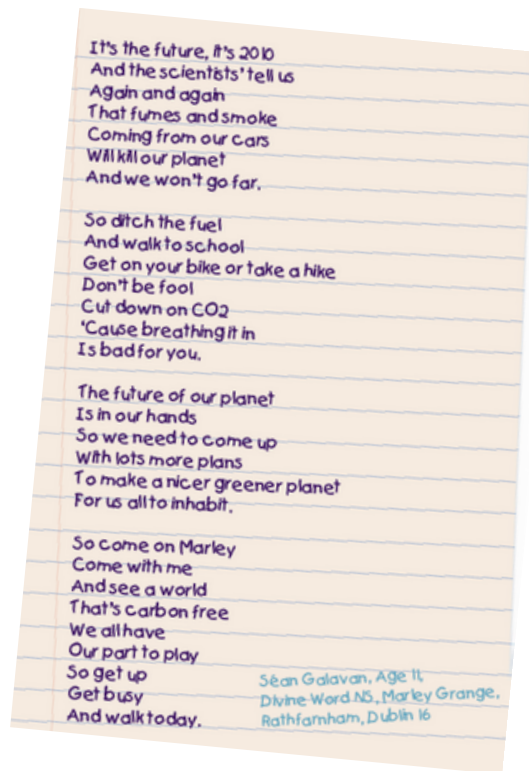 It's the future, it's 2010
And the scientists' tell us
Again and again
That fumes and smoke
Coming from our cars
Will kill our planet
And we won't go far.

So ditch the fuel
And walk to school
Get on your bike or take a hike
Don't be fool
Cut down on CO2
'Cause breathing it in
Is bad for you.

The future of our planet
Is in our hands
So we need to come up
With lots more plans
To make a nicer greener planet
For us all to inhabit.

So come on Marley
Come with me
And see a world
That's carbon free
We all have
Our part to play
So get up
Get busy
And walk today.

Séan Galavan, Age 11,
Divine Word NS, Marley Grange,
Rathfarnham, Dublin 16